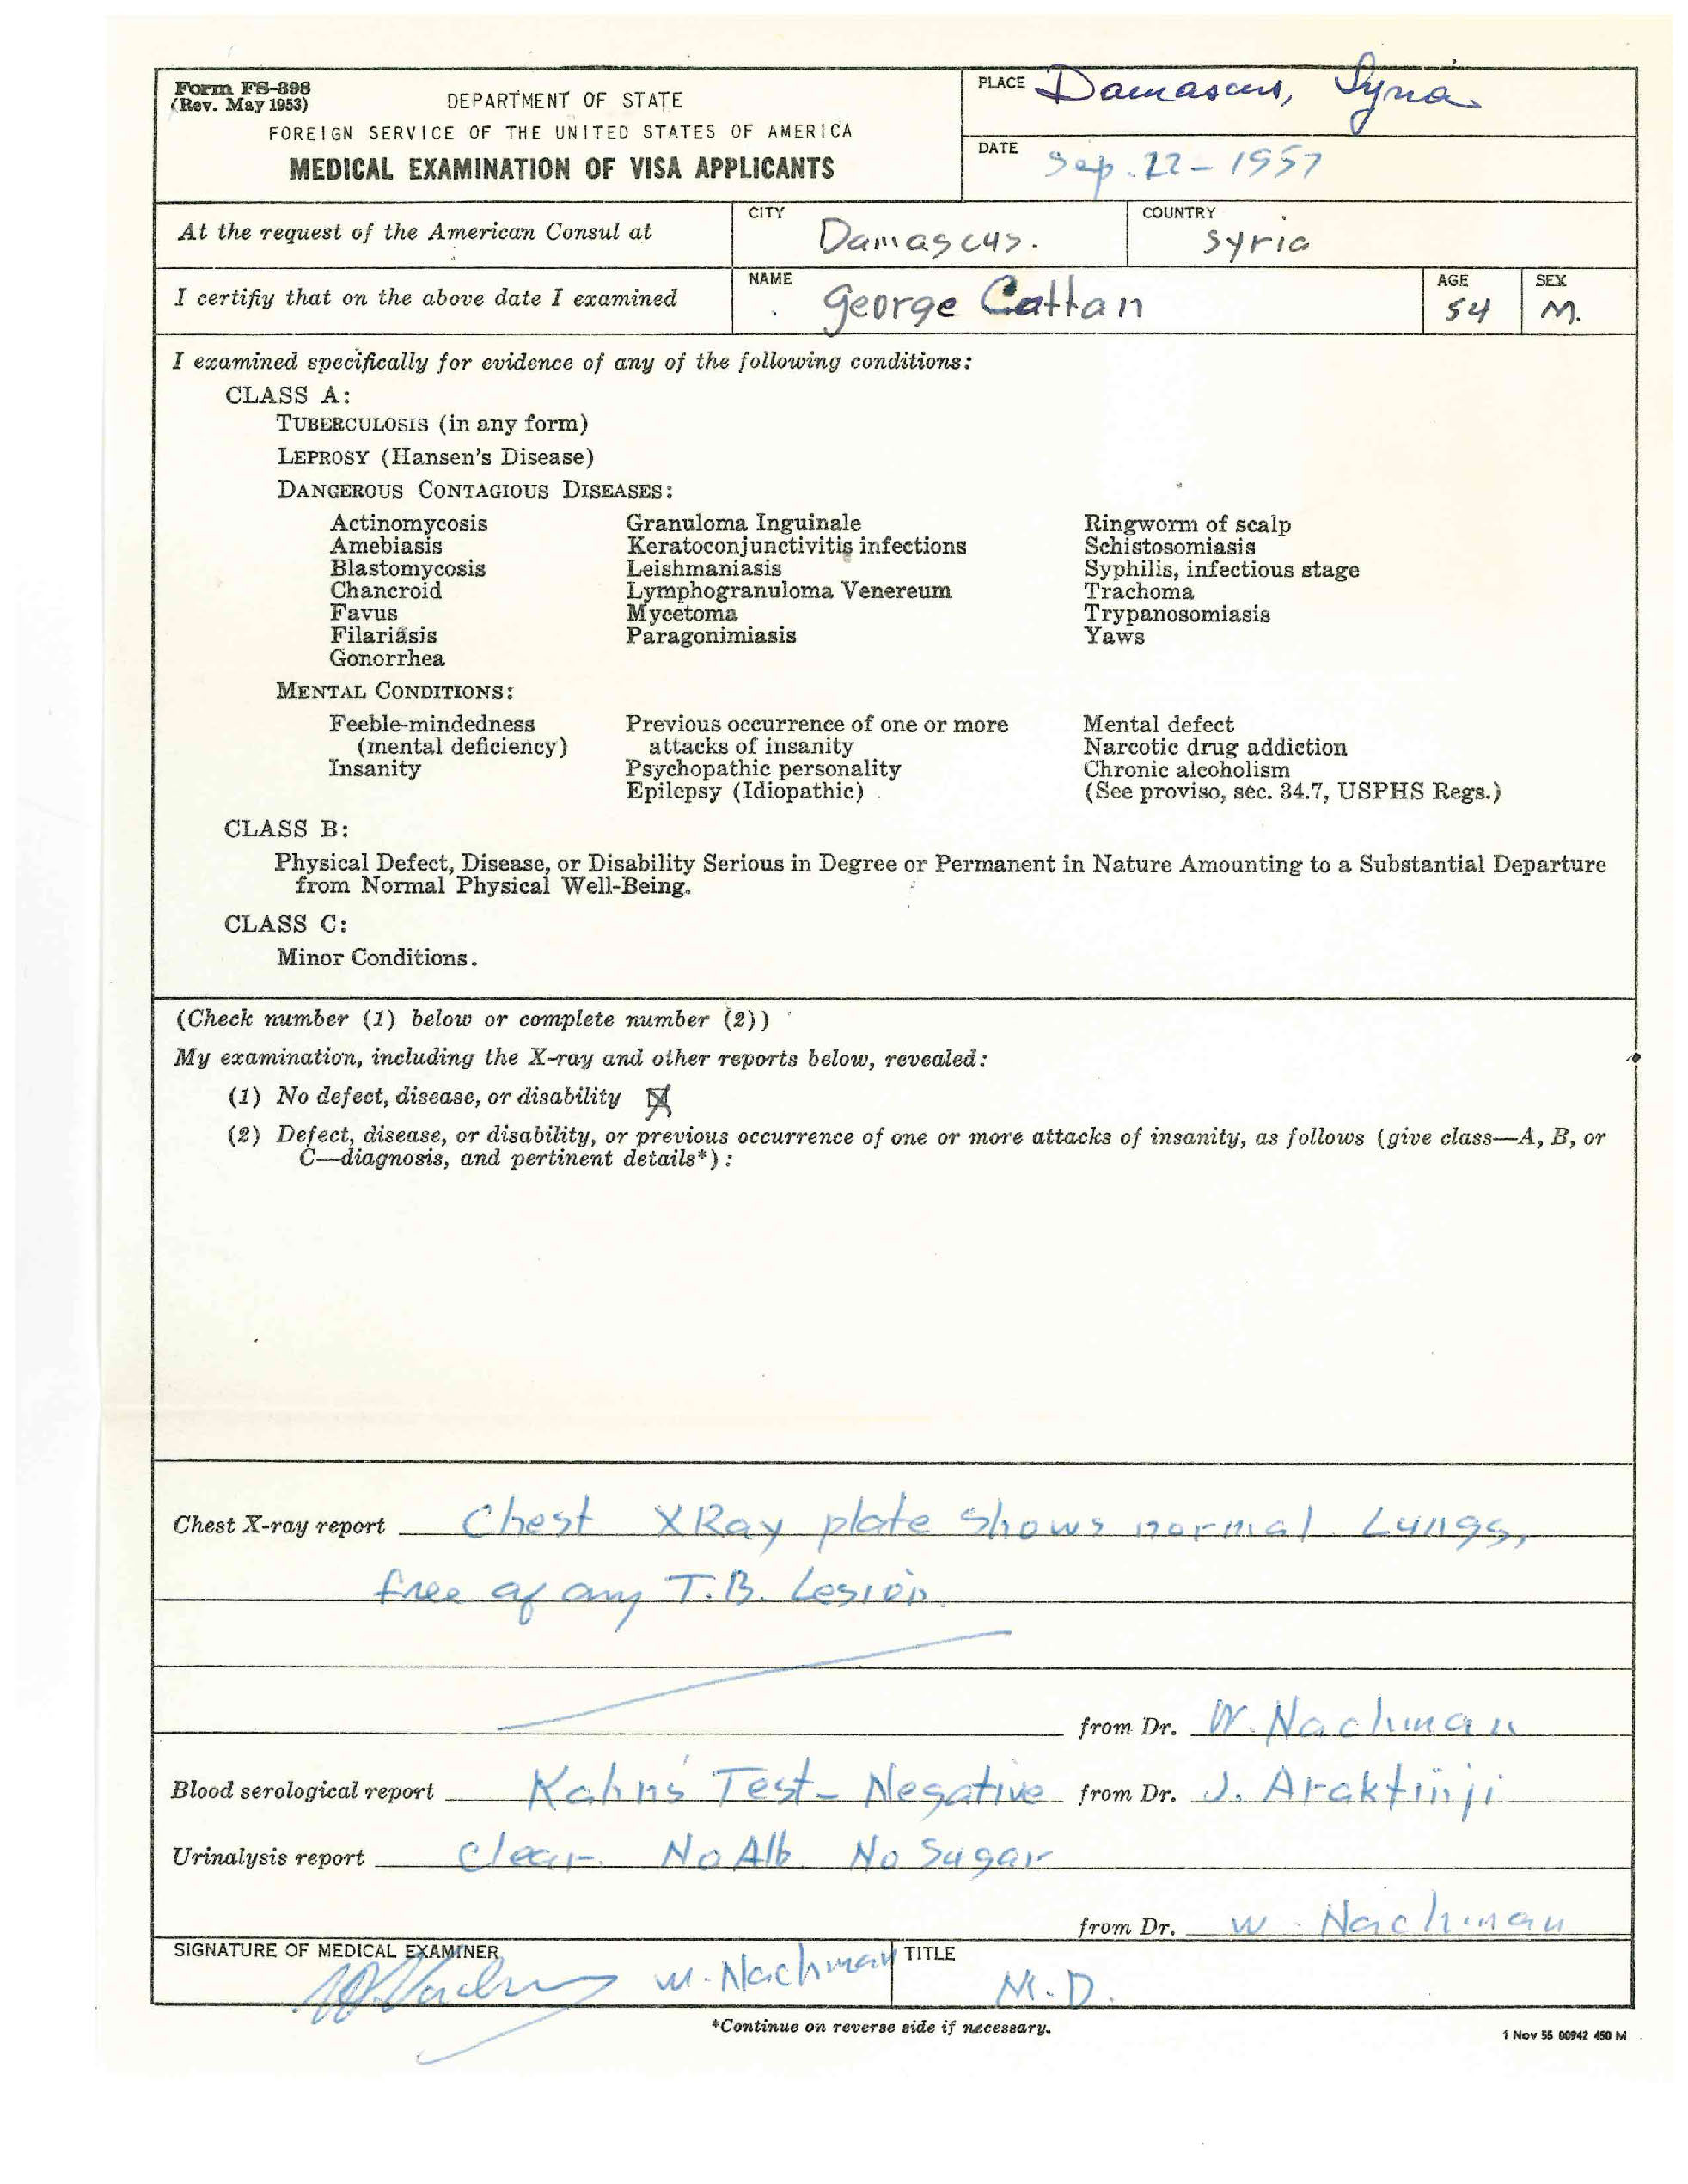 Form FS-398
(Rev. May 1953)
DEPARTMENT OF STATE
FOREIGN SERVICE OF THE UNITED STATES OF AMERICA
MEDICAL EXAMINATION OF VISA APPLICANTS
PLACE Damascus, Syria
DATE Sep. 22 - 1957
At the request of the American Consul at
CITY Damascus.
COUNTRY Syria
I certify that on the above date I examined
NAME George Cattan
AGE 54
SEX M.
I examined specifically for evidence of any of the following conditions:
CLASS A:
TUBERCULOSIS (in any form)
LEPROSY (Hansen's Disease)
DANGEROUS CONTAGIOUS DISEASES:
Actinomycosis Granuloma Inguinale Ringworm of scalp
Amebiasis Keratoconjunctivitis infections Schistosomiasis
Blastomycosis Leishmaniasis Syphilis, infectious stage
Chancroid Lymphogranuloma Venereum Trachoma
Favus Mycetoma Trypanosomiasis
Filariasis Paragonimiasis Yaws
Gonorrhea
MENTAL CONDITIONS:
Feeble-mindedness Previous occurrence of one or more Mental defect
(mental deficiency) attacks of insanity Narcotic drug addiction
Insanity Psychopathic personality Chronic alcoholism
Epilepsy (Idiopathic) (See proviso, sec. 34.7, USPHS Regs.)
CLASS B:
Physical Defect, Disease, or Disability Serious in Degree or Permanent in Nature Amounting to a Substantial Departure
from Normal Physical Well-Being.
CLASS C:
Minor Conditions.
(Check number (1) below or complete number (2))
My examination, including the X-ray and other reports below, revealed:
(1) No defect, disease, or disability ☒
(2) Defect, disease, or disability, or previous occurrence of one or more attacks of insanity, as follows (give class—A, B, or
C—diagnosis, and pertinent details*):
Chest X-ray report Chest XRay plate shows normal Lungs,
free of any T.B. Lesion.
from Dr. W. Nachman
Blood serological report Kahn's Test - Negative from Dr. J. Araktinji
Urinalysis report Clear. No Alb. No Sugar
from Dr. W. Nachman
SIGNATURE OF MEDICAL EXAMINER W. Nachman
TITLE M.D.
*Continue on reverse side if necessary.
1 Nov 55 00942 450 M